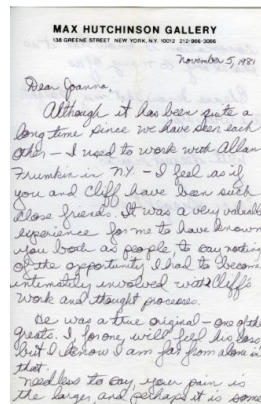 MAX HUTCHINSON GALLERY
138 GREENE STREET NEW YORK, N.Y. 10012 212-966-3066
November 5, 1981
Dear Joanna,
Although it has been quite a
long time since we have seen each
other – I used to work with Allan
Frumkin in N.Y. – I feel as if
you and Cliff have been such
close friends. It was a very valuable
experience for me to have known
you both as people, to say nothing
of the opportunity I had to become
intimately involved with Cliff's
work and thought processes.
He was a true original – one of the
greats. I, for one, will feel his loss,
but I know I am far from alone in
that.
Needless to say, your pain is
the larger, and perhaps it is some